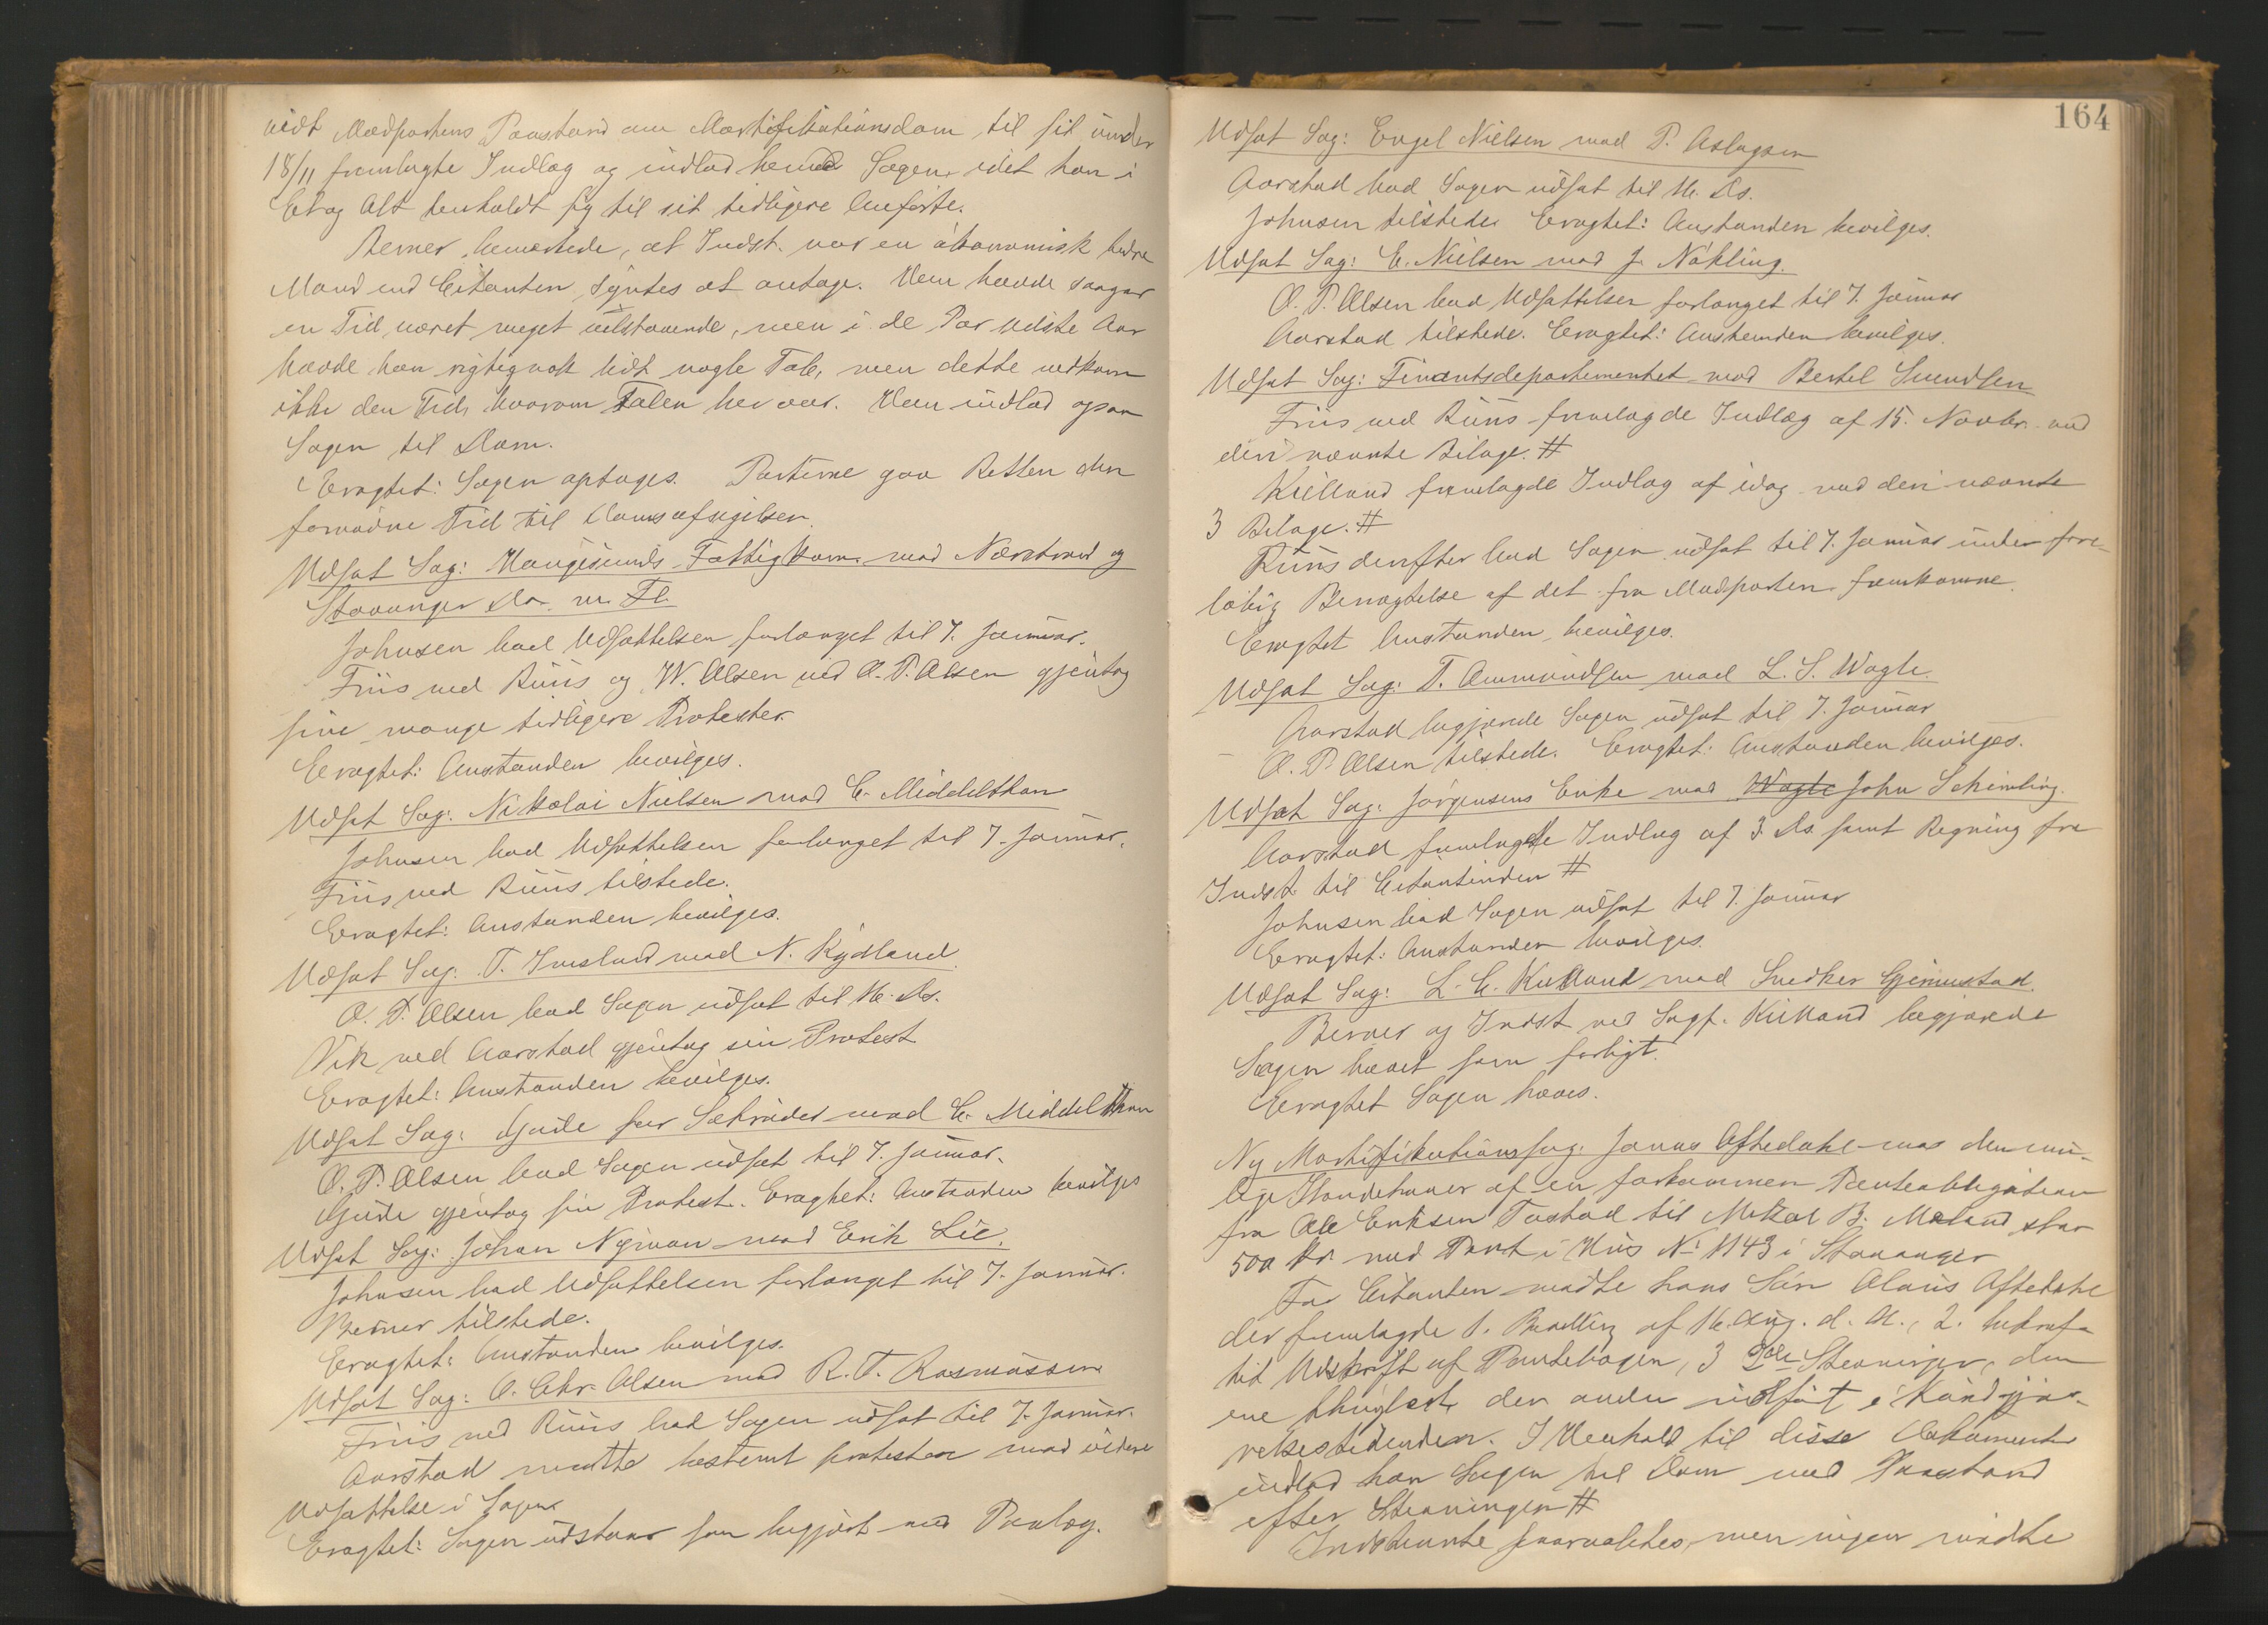 vidt Modpartens Paastand om Mortifikationsdom til sit under
18/11 fremlagte Indlæg og indlod hermed Sagen, idet han i
Et og Alt henholdt sig til sit tidligere Anførte.
Berner bemærkede, at Indst. var en økonomisk bedre
Mand end Citanten syntes at antage. Han havde saagar
en Tid været meget velstaaende, men i de Par sidste Aar
havde han rigtignok lidt nogle Tab, men dette vedkom
ikke den Tid, hvorom Talen her var. Han indlod ogsaa
Sagen til Dom.
Eragtet: Sagen optages. Parterne gaa Retten den
fornødne Tid til Domsafsigelsen.
Udsat Sag: Haugesunds Fattigkom. mod Nærstrand og
Stavanger do. m. Fl.
Johnsen bad Udsættelsen forlænget til 7. Januar.
Friis ved Ruus og W. Olsen ved O. P. Olsen gjentog
sine mange tidligere Protester.
Eragtet: Anstanden bevilges.
Udsat Sag: Nikolai Nielsen mod C. Middelthon
Johnsen bad Udsættelsen forlænget til 7. Januar.
Friis ved Ruus tilstede.
Eragtet: Anstanden bevilges.
Udsat Sag: T. Imsland mod N. Rydland
O. P. Olsen bad Sagen udsat til 16. ds.
Vik ved Aarstad gjentog sin Protest
Eragtet: Anstanden bevilges.
Udsat Sag: Gjude for Schrøder mod C. Middelthon
O. P. Olsen bad Sagen udsat til 7. Januar.
Gjude gjentog sin Protest. Eragtet: Anstanden bevilges
Udsat Sag: Johan Nyman mod Erik Lie.
Johnsen bad Udsættelsen forlænget til 7. Januar.
Berner tilstede.
Eragtet: Anstanden bevilges.
Udsat Sag: O. Chr. Olsen mod R. T. Rasmussen
Friis ved Ruus bad Sagen udsat til 7. Januar.
Aarstad maatte bestemt protestere mod videre
Udsættelse i Sagen.
Eragtet: Sagen udstaar som begjært med Paalæg.
164
Udsat Sag: Engel Nielsen mod P. Aslagsen
Aarstad bad Sagen udsat til 16. ds.
Johnsen tilstede. Eragtet: Anstanden bevilges.
Udsat Sag: E. Nielsen mod J. Nøkling.
O. P. Olsen bad Udsættelsen forlænget til 7. Januar
Aarstad tilstede. Eragtet: Anstanden bevilges.
Udsat Sag: Finantsdepartementet mod Bertel Svendsen
Friis ved Ruus fremlagde Indlæg af 15. Novbr. med
deri nævnte Bilage. #
Kielland fremlagde Indlæg af idag med deri nævnte
3 Bilage. #
Ruus derefter bad Sagen udsat til 7. Januar under fore-
løbig Benægtelse af det fra Modparten fremkomne.
Eragtet Anstanden bevilges.
Udsat Sag: T. Ammundsen mod L. S. Wagle.
Aarstad begjærede Sagen udsat til 7. Januar
O. P. Olsen tilstede. Eragtet: Anstanden bevilges.
Udsat Sag: Jørgensens Enke mod Wagle John Schimling.
Aarstad fremlagde Indlæg af 3. ds. samt Regning fra
Indst. til Citantinden #
Johnsen bad Sagen udsat til 7. Januar
Eragtet: Anstanden bevilges.
Udsat Sag: L. C. Kielland mod Snedker Gjemmestad.
Berner og Indst. ved Sagf. Kielland begjærede
Sagen hævet som forligt.
Eragtet Sagen hæves.
Ny Mortifikationssag: Jonas Aftedahl mod den mu-
lige Ihændehaver af en forkommen Panteobligation
fra Ole Eriksen Tastad til Mikal B. Maland stor
500 Kr. med Pant i Hus No 1143 i Stavanger
For Citanten mødte hans Søn Olaus Aftedahl
der fremlagde 1. Bevilling af 16. Aug. d. A., 2. bekræf-
tet Udskrift af Pantebogen, 3 2de Stevninger, den
ene thinglæst, den anden indført i Kundgjø-
relsestidenden. I Henhold til disse Dokumenter
indlod han Sagen til Dom med Paastand
efter Stevningen #
Indstevnte paaraabtes, men ingen mødte